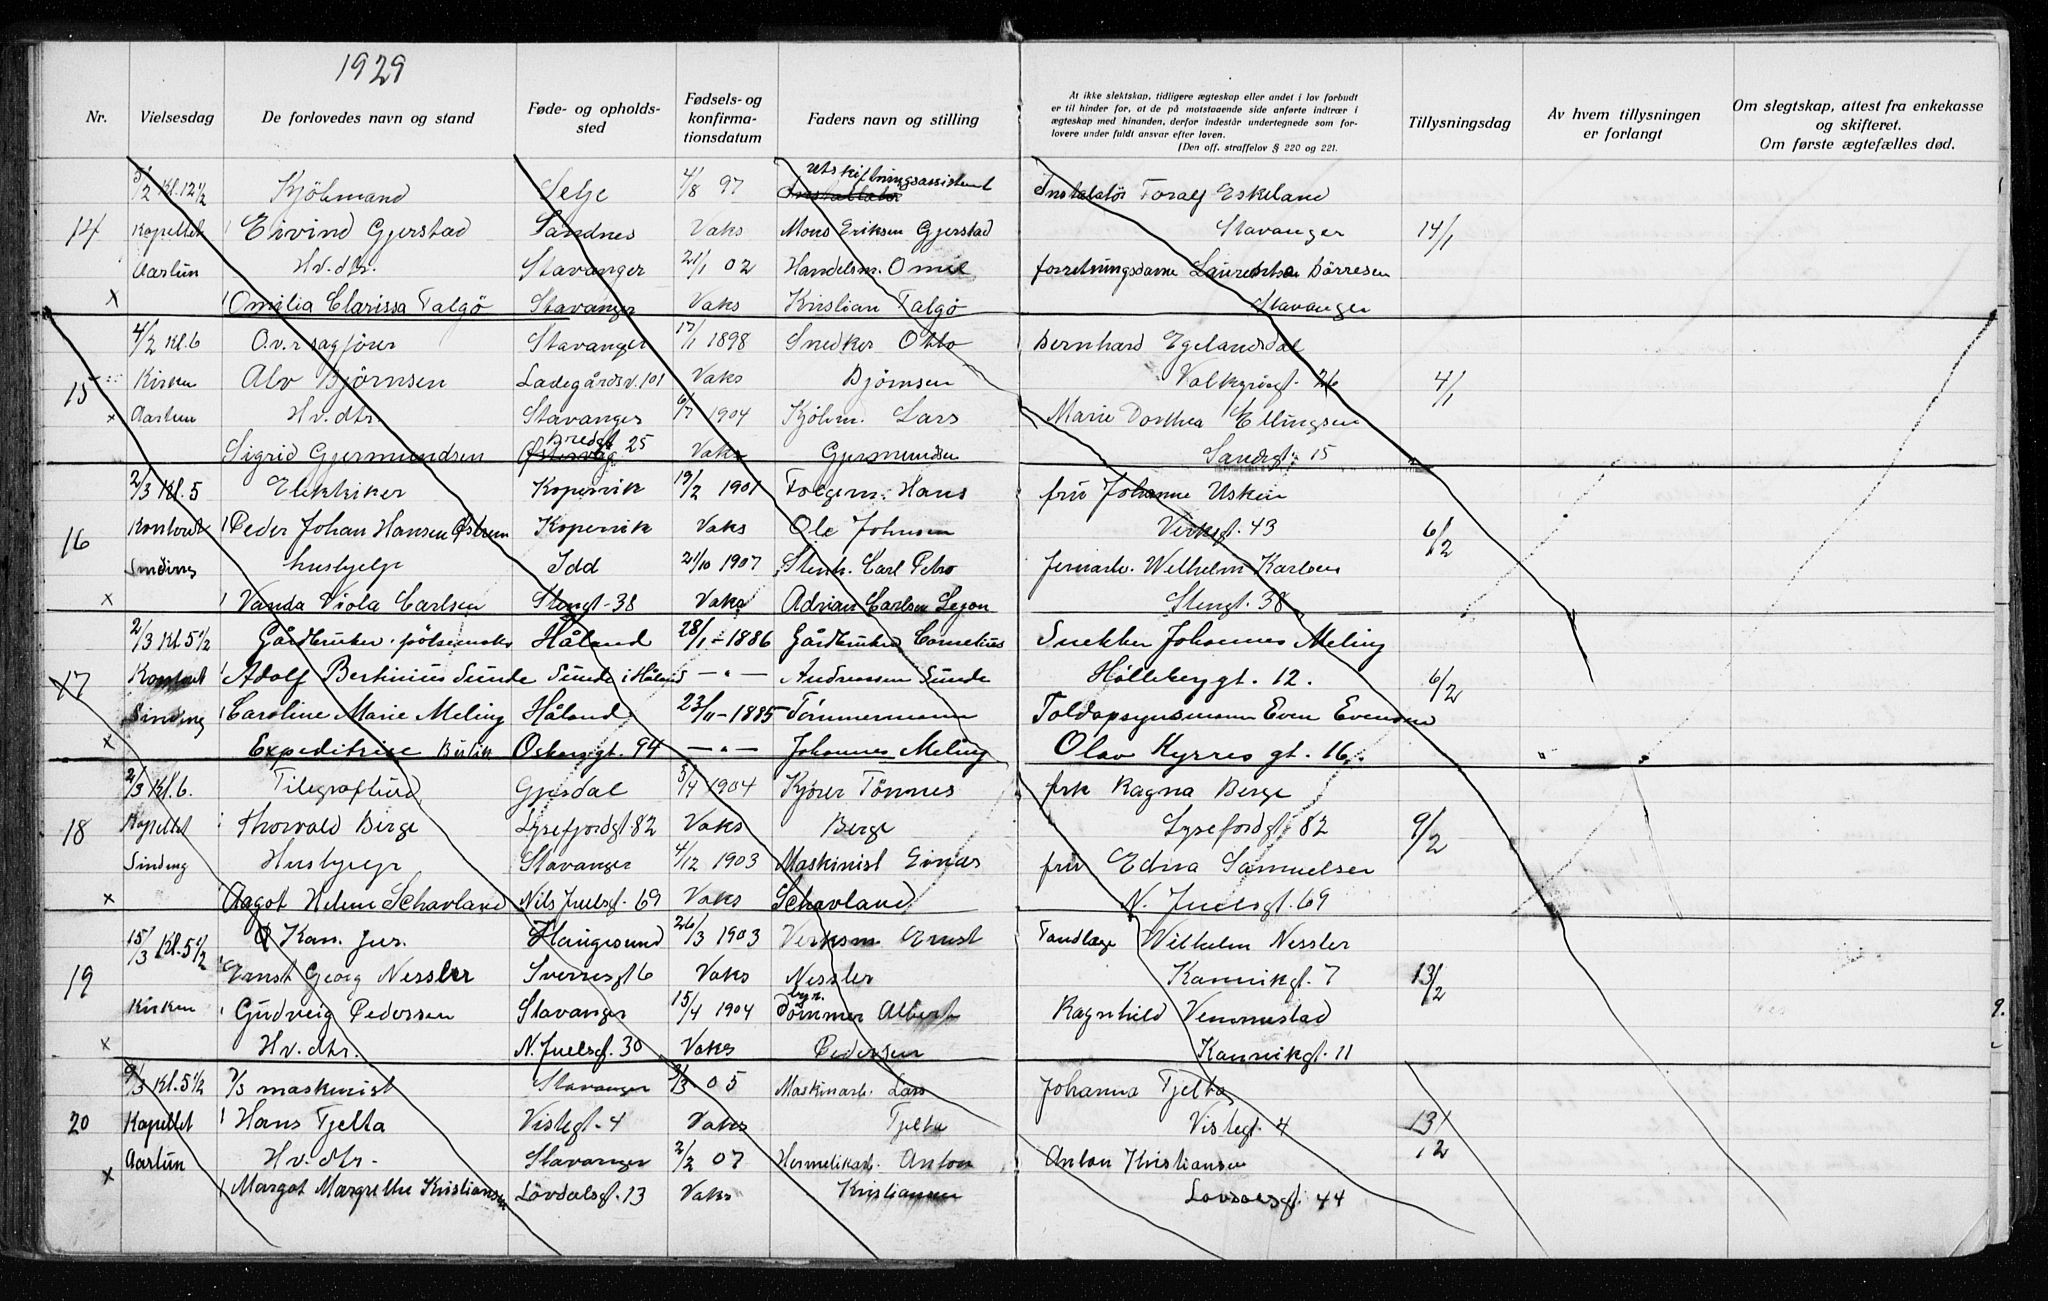 1929
Nr.
Vielsesdag
De forlovedes navn og stand
Føde- og opholds-
sted
Fødsels- og
konfirma-
tionsdatum
Faders navn og stilling
At ikke slektskap, tidligere ægteskap eller andet i lov forbudt
er til hinder for, at de på motstaaende side anførte indtræer i
ægteskap med hinanden, derfor indestår undertegnede som for-
lovere under fuldt ansvar efter loven.
(Den off. straffelov § 220 og 221.
Tillysningsdag
Av hvem tillysningen
er forlangt
Om slegtskap, attest fra enkekasse
og skifteret.
Om første ægtefælles død.
utskiftningsassistent
5/2 Kl. 12 1/2 Kjöbmand Selje 4/8 97 Installatør Toralf Eskeland
14 Kapellet Eivind Gjerstad Sandnes Vaks Mons Eriksen Gjerstad Stavanger 14/1
Aarlun Hv. dtr. Stavanger 21/1 02 Handelsm. Omil forretningsdame Börresen
x Omilia Clarissa Talgö Stavanger Vaks Kristian Talgö Stavanger
4/2 Kl. 6 O.r.sagförer Stavanger 17/1 1898 Snedker Otto Bernhard Egelandsdal
15 Kirken Alv Björnsen Ladegårdsv. 101 Vaks Björnsen Valkyrigt. 26 4/1
x Aarlun Hv. dtr. Stavanger 6/7 1904 Kjöbm. Lars Marie Dorthea Ellingsen
Bredgt
Sigrid Gjermundsen 25 Vaks Gjermundsen Sandsgt. 15
2/3 Kl. 5 Elektriker Kopervik 19/2 1901 Hans fru Johanne Usken
16 Kontoret Peder Johan Hansen Kopervik Vaks Ole Johnsen Verksgt. 43 6/2
Sinding hushjelp Idd 21/10 1907 Stenh. Carl Petro jernarb. Wilhelm Karlsen
x Vanda Viola Carlsen Stengt. 38 Vaks Adrian Carlsen Stengt. 38
2/3 Kl. 5 1/2 Gårdbruker, Håland 28/1 - 1886 Gårdbruker Cornelius Snekker Johannes Meling
17 Kontoret Adolf Bertinius Sunde Sunde i Håland — " — Andreassen Sunde Hölleberggt. 12. 6/2
Sinding Caroline Marie Meling Håland 23/11 - 1885 Tömmermann Toldopsynsmann Even Evensen
x Expeditrise Oskarsgt. 94 — " — Johannes Meling Olav Kyrres gt. 16.
2/3 Kl. 6. Gjesdal 5/4 1904 Kjörer Tönnes frk Ragna Berge
18 Kapellet Thorvald Birge Lysefjordgt. 82 Vaks Berge Lysefordgt. 82 9/2
Sinding Hushjelp Stavanger 4/12 1903 Maskinist Einar fru Edna Samuelsen
x Aagot Helene Schavland Nils Juelsgt. 69 Vaks Schavland N. Juelsgt. 69
15/3 Kl. 5 1/2 Kan. jur. Haugesund 26/3 1903 Verksm Ernst Tandlæge Wilhelm Nessler
19 Ernst Georg Nessler Sverresgt 6 Vaks Nessler Kannikgt. 7 13/2
Kirken Gudveig Pedersen Stavanger 15/4 1904 Albert Ragnhild Vennestad
x Hv. dtr. N. Juelsgt. 30 Vaks Pedersen Kannikgt. 11
9/3 Kl. 5 1/2 maskinist Stavanger 05 Maskinarb. Lars Johanna Tjelta
20 Kapellet Hans Tjelta Vistegt. 4 Vaks Tjelta Vistegt. 4 13/2
Aarlun Hv. dtr. Stavanger 2/2 07 Hermetikarb. Anton Anton Kristiansen
x Margot Margrethe Kristiansen Lövdalsgt. 13 Vaks Kristiansen 44